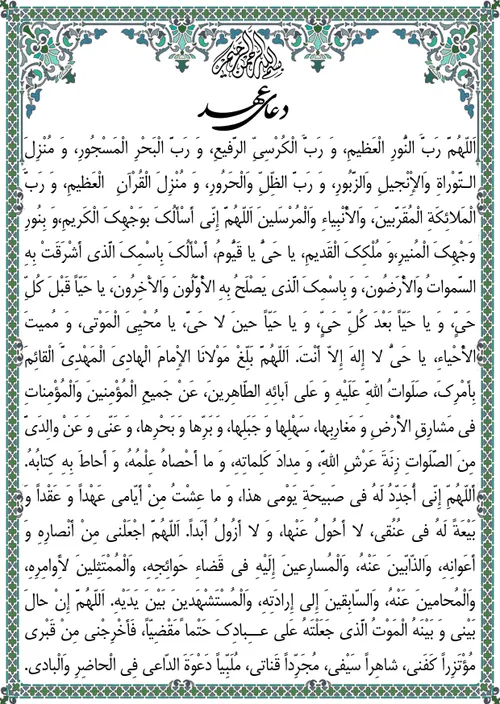 بسم الله الرحمن الرحیم
دعای عهد
اَللّهُمَّ رَبَّ النُّورِ الْعَظیمِ، وَ رَبَّ الْكُرْسِیِّ الرَّفیعِ، وَ رَبَّ الْبَحْرِ الْمَسْجُورِ، وَ مُنْزِلَ
التَّوْراةِ وَالاِنْجیلِ وَالزَّبُورِ، وَ رَبَّ الظِّلِّ وَالْحَرُورِ، وَ مُنْزِلَ الْقُرْآنِ الْعَظیمِ، وَ رَبَّ
الْمَلائِكَةِ الْمُقَرَّبینَ، وَالاَنْبِیاءِ وَالْمُرْسَلینَ اَللّهُمَّ اِنّی اَسْأَلُکَ بوجْهِکَ الْكَریمِ،وَ بِنُورِ
وَجْهِکَ الْمُنیرِ،وَ مُلْكِکَ الْقَدیمِ، یا حَیُّ یا قَیُّومُ، اَسْأَلُکَ بِاسْمِکَ الَّذی اَشْرَقَتْ بِهِ
السَّمواتُ وَالاَرَضُونَ، وَ بِاسْمِکَ الَّذی یَصْلَحُ بِهِ الاَوَّلُونَ وَالاخِرُونَ، یا حَیّاً قَبْلَ كُلِّ
حَیٍّ، وَ یا حَیّاً بَعْدَ كُلِّ حَیٍّ، وَ یا حَیّاً حینَ لا حَیَّ، یا مُحْیِیَ الْمَوْتی، وَ مُمیتَ
الاَحْیاءِ، یا حَیُّ لا إِلهَ اِلاّ اَنْتَ. اَللّهُمَّ بَلِّغْ مَوْلانَا الاِمامَ الْهادِیَ الْمَهْدِیَّ الْقائِمَ
بِاَمْرِکَ، صَلَواتُ اللهِ عَلَیْهِ وَ عَلی آبائِهِ الطّاهِرینَ، عَنْ جَمیعِ الْمُؤْمِنینَ وَالْمُؤْمِناتِ
فی مَشارِقِ الاَرْضِ وَ مَغارِبِها، سَهْلِها وَ جَبَلِها، وَ بَرِّها وَ بَحْرِها، وَ عَنّی وَ عَنْ والِدَیَّ
مِنَ الصَّلَواتِ زِنَةَ عَرْشِ اللهِ، وَ مِدادَ كَلِماتِهِ، وَ ما اَحْصاهُ عِلْمُهُ، وَ اَحاطَ بِهِ كِتابُهُ.
اَللّهُمَّ اِنّی اُجَدِّدُ لَهُ فی صَبیحَةِ یَوْمی هذا، وَ ما عِشْتُ مِنْ اَیّامی عَهْداً وَ عَقْداً وَ
بَیْعَةً لَهُ فی عُنُقی، لا اَحُولُ عَنْها، وَ لا اَزُولُ اَبَداً. اَللّهُمَّ اجْعَلْنی مِنْ اَنْصارِهِ وَ
اَعْوانِهِ، وَالذّابّینَ عَنْهُ، وَالْمُسارِعینَ اِلَیْهِ فی قَضاءِ حَوائِجِهِ، وَالْمُمْتَثِلینَ لاَوامِرِهِ،
وَالْمُحامینَ عَنْهُ، وَالسّابِقینَ اِلی اِرادَتِهِ، وَالْمُسْتَشْهَدینَ بَیْنَ یَدَیْهِ. اَللّهُمَّ اِنْ حالَ
بَیْنی وَ بَیْنَهُ الْمَوْتُ الَّذی جَعَلْتَهُ عَلی عِبادِکَ حَتْماً مَقْضِیّاً، فَاَخْرِجْنی مِنْ قَبْری
مُؤْتَزِراً كَفَنی، شاهِراً سَیْفی، مُجَرِّداً قَناتی، مُلَبِّیاً دَعْوَةَ الدّاعی فِی الْحاضِرِ وَالْبادی.